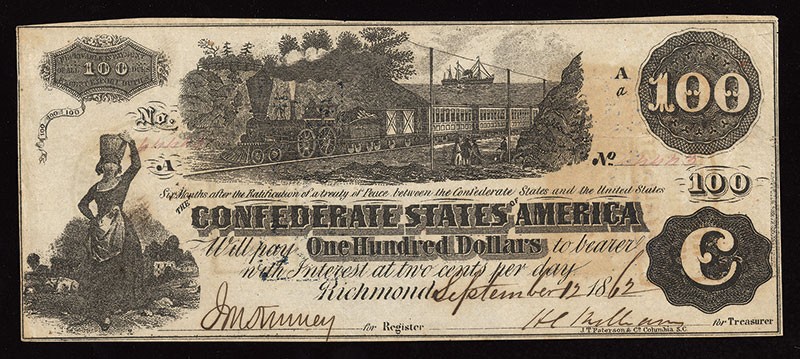 100
100 100 100
No.
A
A
a
100
No
100
Six Months after the Ratification of a treaty of Peace between the Confederate States and the United States
THE CONFEDERATE STATES OF AMERICA
Will pay One Hundred Dollars to bearer
with Interest at two cents per day
Richmond September 12 1862
C
for Register
for Treasurer
J.T. Paterson & Co. Columbia S.C.